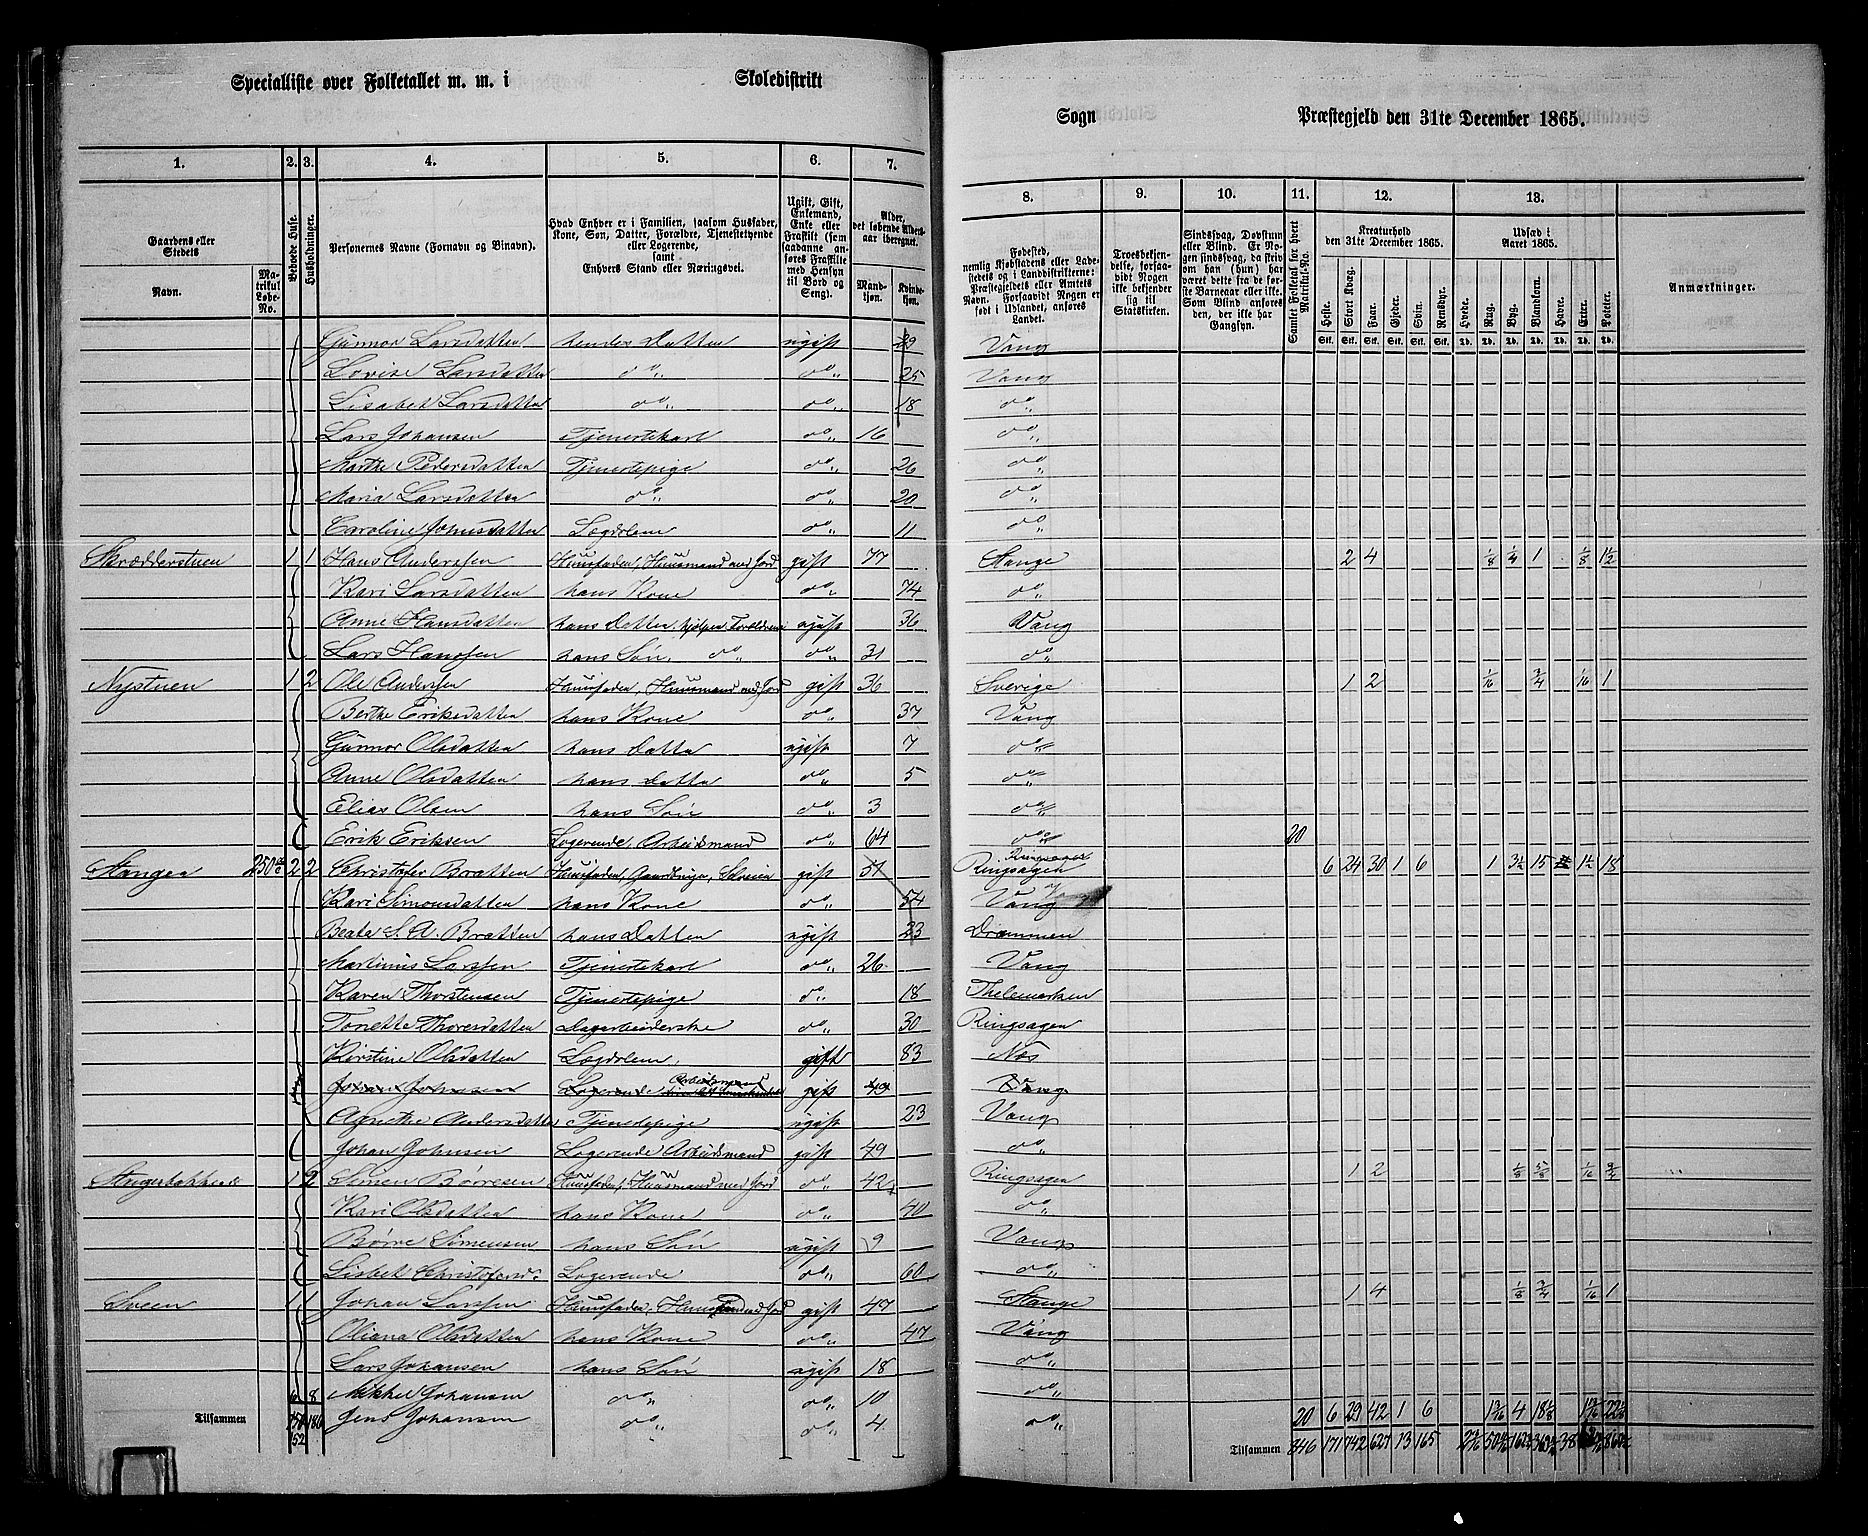 Specialliste over Folketallet m. m. i Skoledistrikt
Sogn Præstegjeld den 31te December 1865.
1. 2. 3. 4. 5. 6. 7. 8. 9. 10. 11. 12. 13.
Gaardens eller Stedets
Navn.
Matrikul Løbe-No.
Beboede Huse.
Husholdninger.
Personernes Navne (Fornavn og Binavn).
Hvad Enhver er i Familien, saasom Husfader, Kone, Søn, Datter, Forældre, Tjenestetyende eller Logerende, samt Enhvers Stand eller Næringsvei.
Ugift, Gift, Enkemand, Enke eller Fraskilt (som saadanne anføres Fraskilte med Hensyn til Bord og Seng).
Alder, det løbende Alders-aar iberegnet.
Mandkjøn. Kvindekjøn.
Fødested, nemlig Kjøbstadens eller Ladestedets og i Landdistrikterne: Præstegjeldets eller Amtets Navn. Forsaavidt Nogen er født i Udlandet, anføres Landet.
Troesbekjendelse, forsaavidt Nogen ikke bekjender sig til Statskirken.
Sindssvag, Døvstum eller Blind. Er Nogen sindssvag, da skriv om han (hun) har været dette fra de første Barneaar eller ikke. Som Blind anføres den, der ikke har Gangsyn.
Samlet Folketal for hvert Matrikul-No.
Kreaturhold den 31te December 1865.
Heste. Stort Kvæg. Faar. Gjeder. Svin. Rensdyr.
Udsæd i Aaret 1865.
Hvede. Rug. Byg. Blandkorn. Havre. Erter. Poteter.
Anmærkninger.
Gunnor Larsdatter hendes Datter ugift 29 Vang
Lovise Larsdatter do do 25 Vang
Lisabet Larsdatter do do 18 do
Lars Johansen Tjenestekarl do 16 do
Marthe Pedersdatter Tjenestepige do 26 do
Maria Larsdatter do do 20 do
Caroline Johnsdatter Lægdslem do 11 do
Skrædderstuen 1 1 Hans Anderssen Huusfader, Huusmand med Jord gift 77 Stange 2 4 1/8 1/4 1 1/8 1½
Kari Larsdatter hans Kone do 74 do
Anne Hansdatter hans Datter, hjelper Forældrene ugift 36 Vang
Lars Hanssen hans Søn do do 31 do
Nystuen 1 2 Ole Anderssen Huusfader, Huusmand med Jord gift 36 Sverige 1 2 1/16 3/4 1/16 1
Berthe Eriksdatter hans Kone do 37 Vang
Gunnor Olsdatter hans Datter ugift 7 do
Anne Olsdatter hans Datter do 5 do
Elias Olsen hans Søn do 3 do
Erik Eriksen Logerende, Arbeidsmand do 64 do 20
Stangen 250 2 2 Christofer Bratten Huusfader, Gaardbruger, Selveier gift 51 Ringsager 6 24 30 1 6 1 3½ 15 1½ 18
Kari Simonsdatter hans Kone do 54 Vang
Beate S. A. Bratten hans Datter ugift 23 Drammen
Martinus Larssen Tjenestekarl do 26 Vang
Karen Thorstensen Tjenestepige do 18 Thelemarken
Tonette Thoresdatter Dagarbeiderske do 30 Ringsager
Kirstine Olsdatter Lægdslem gift 83 Næs
Johan Johnsen Logerende Arbeidsmand gift 49 Vang
Agnethe Andersdatter Tjenestepige ugift 23 Vang
Johan Johnsen Logerende Arbeidsmand gift 49 do
Stangerbakken 1 2 Simen Børresen Huusfader, Huusmand med Jord do 42 Ringsager 1 2 1/8 5/8 1/16 3/4
Kari Olsdatter hans Kone do 40 do
Børre Simensen hans Søn ugift 9 Vang
Lisbet Christofersd. Logerende do 60 do
Sveen 1 1 Johan Larssen Huusfader, Huusmand med Jord gift 47 Stange 1 4 1/8 3/4 1/16 1
Oliana Olsdatter hans Kone do 47 Vang
Lars Johansen hans Søn ugift 18 do
6 8 Mikkel Johansen do do 10 do
Jens Johansen do do 4 do
Tilsammen 186
52
20 6 29 42 1 6 4
Tilsammen 846 171 742 627 13 165